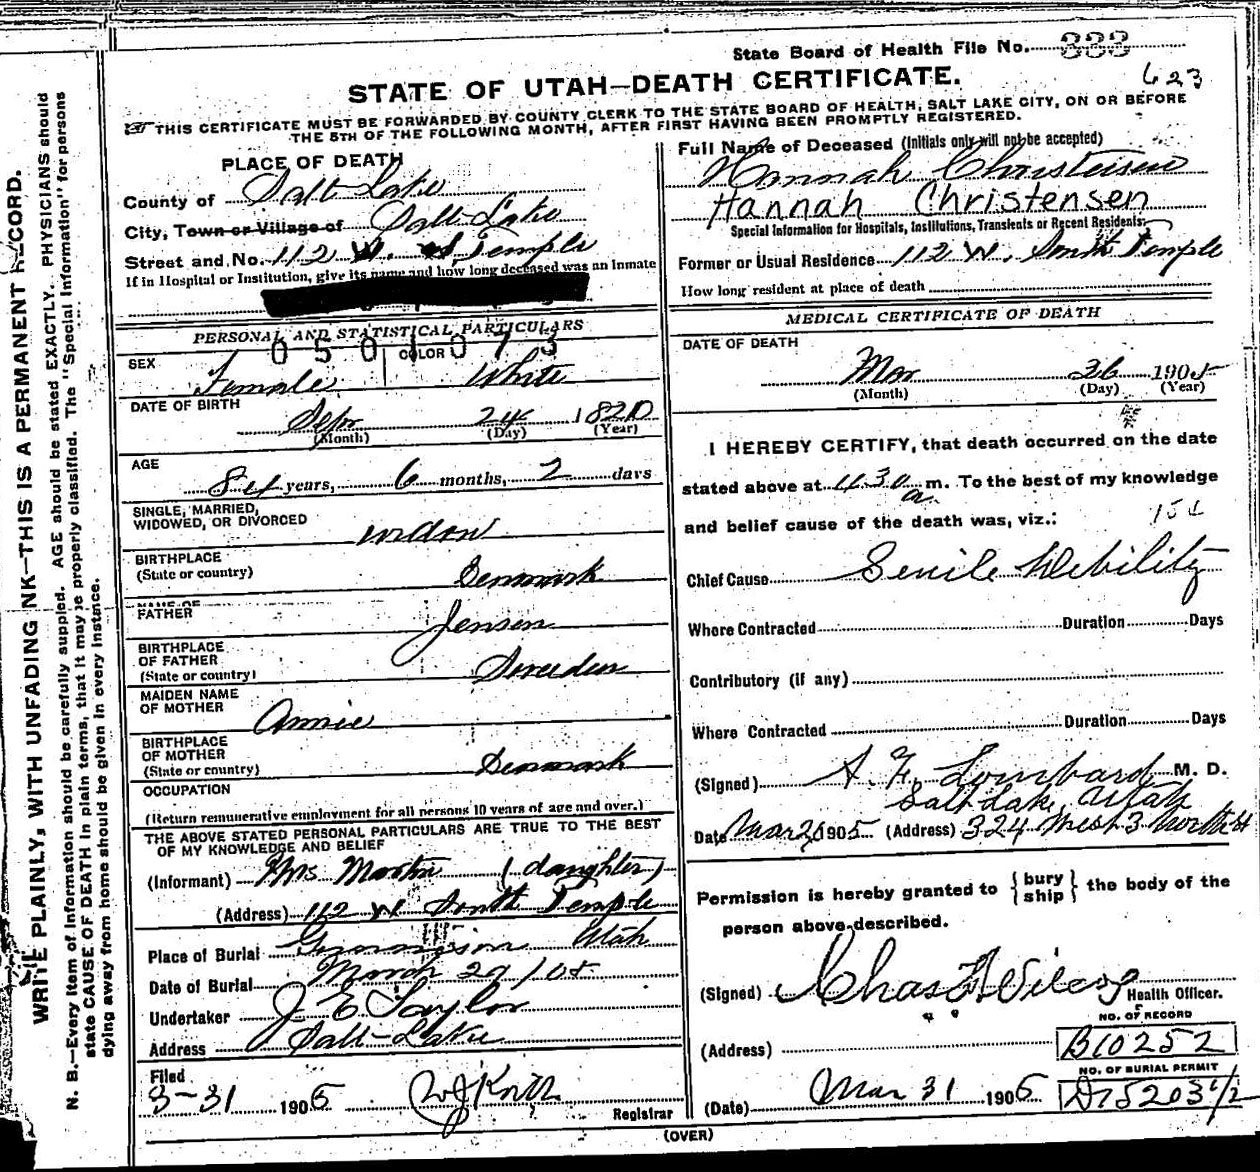 State Board of Health File No. 333
623
STATE OF UTAH—DEATH CERTIFICATE.
THIS CERTIFICATE MUST BE FORWARDED BY COUNTY CLERK TO THE STATE BOARD OF HEALTH, SALT LAKE CITY, ON OR BEFORE
THE 5TH OF THE FOLLOWING MONTH, AFTER FIRST HAVING BEEN PROMPTLY REGISTERED.
PLACE OF DEATH
County of Salt Lake
City, Town or Village of Salt Lake
Street and No. 112 W. S. Temple
If in Hospital or Institution, give its name and how long deceased was an inmate
PERSONAL AND STATISTICAL PARTICULARS
0501073
SEX Female COLOR White
DATE OF BIRTH Sepr 24 1820
(Month) (Day) (Year)
AGE 84 years, 6 months, 2 days
SINGLE, MARRIED,
WIDOWED, OR DIVORCED widow
BIRTHPLACE
(State or country) Denmark
NAME OF
FATHER Jensen
BIRTHPLACE
OF FATHER
(State or country) Sweeden
MAIDEN NAME
OF MOTHER Annie
BIRTHPLACE
OF MOTHER
(State or country) Denmark
OCCUPATION
(Return remunerative employment for all persons 10 years of age and over.)
THE ABOVE STATED PERSONAL PARTICULARS ARE TRUE TO THE BEST
OF MY KNOWLEDGE AND BELIEF
(Informant) Mrs (daughter)
(Address) 112 W South Temple
Place of Burial Gunnison Utah
Date of Burial March 29/05
Undertaker J E Taylor
Address Salt Lake
Filed
3-31 1905
Registrar
Full Name of Deceased (Initials only will not be accepted)
Hannah Christensen
Hannah Christensen
Special Information for Hospitals, Institutions, Transients or Recent Residents:
Former or Usual Residence 112 W. South Temple
How long resident at place of death
MEDICAL CERTIFICATE OF DEATH
DATE OF DEATH
Mar 26 1905
(Month) (Day) (Year)
I HEREBY CERTIFY, that death occurred on the date
stated above at 4.30 a. m. To the best of my knowledge
and belief cause of the death was, viz.:
154
Chief Cause Senile Debility
Where Contracted Duration Days
Contributory (if any)
Where Contracted Duration Days
(Signed) A. F. Lombard M. D.
Salt Lake, Utah
Date Mar 26 1905 (Address) 324 West 3 North
Permission is hereby granted to {bury ship} the body of the
person above described.
(Signed) Chas F Wilcox
Health Officer.
NO. OF RECORD
(Address) B10252
NO. OF BURIAL PERMIT
(Date) Mar 31 1905
(OVER)
WRITE PLAINLY, WITH UNFADING INK—THIS IS A PERMANENT RECORD.
N. B.—Every item of information should be carefully supplied. AGE should be stated EXACTLY. PHYSICIANS should
state CAUSE OF DEATH in plain terms, that it may be properly classified. The "Special Information" for persons
dying away from home should be given in every instance.